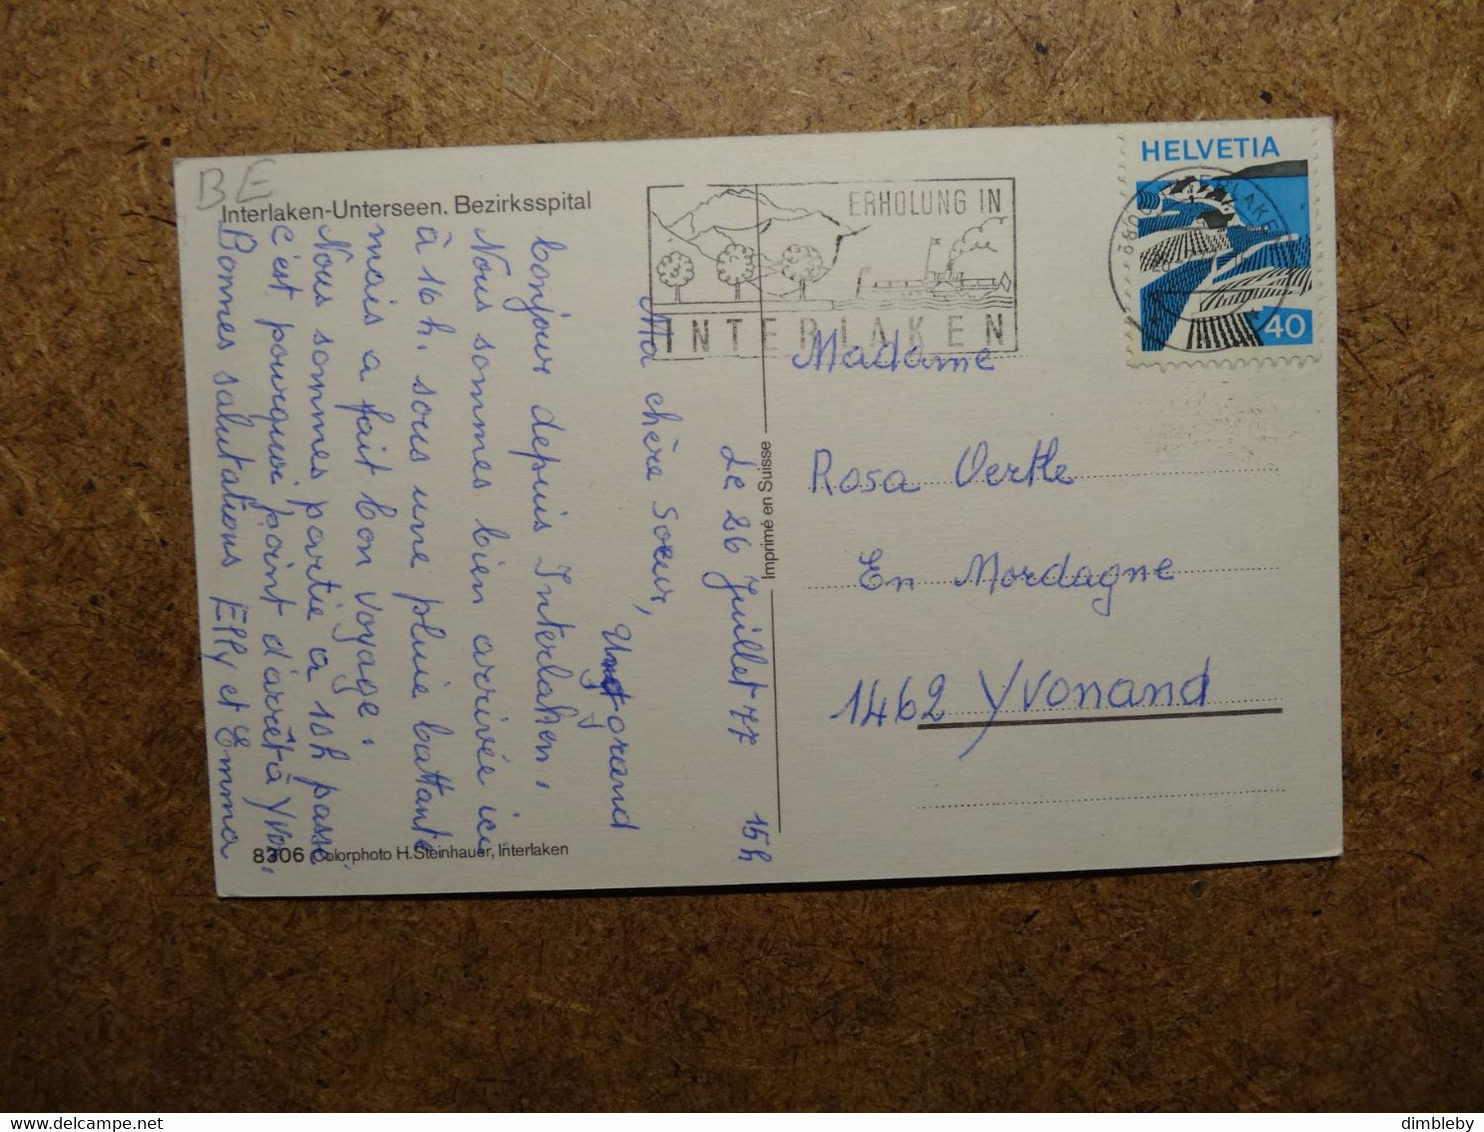 BE
Interlaken-Unterseen. Bezirksspital
ERHOLUNG IN
INTERLAKEN
HELVETIA
40
Le 26 Juillet 77 15h
Ma chère Soeur,
Un grand
bonjour depuis Interlaken,
Nous sommes bien arrivée ici
à 16 h. sous une pluie battante
mais a fait bon voyage.
Nous sommes partie à 10h passé
c'est pourquoi point d'arrêt à Yvon.
Bonnes salutations Elly et Emma
Imprimé en Suisse
Madame
Rosa Oertle
En Mordagne
1462 Yvonand
8306 Colorphoto H.Steinhauer, Interlaken
delcampe.net
dimbleby